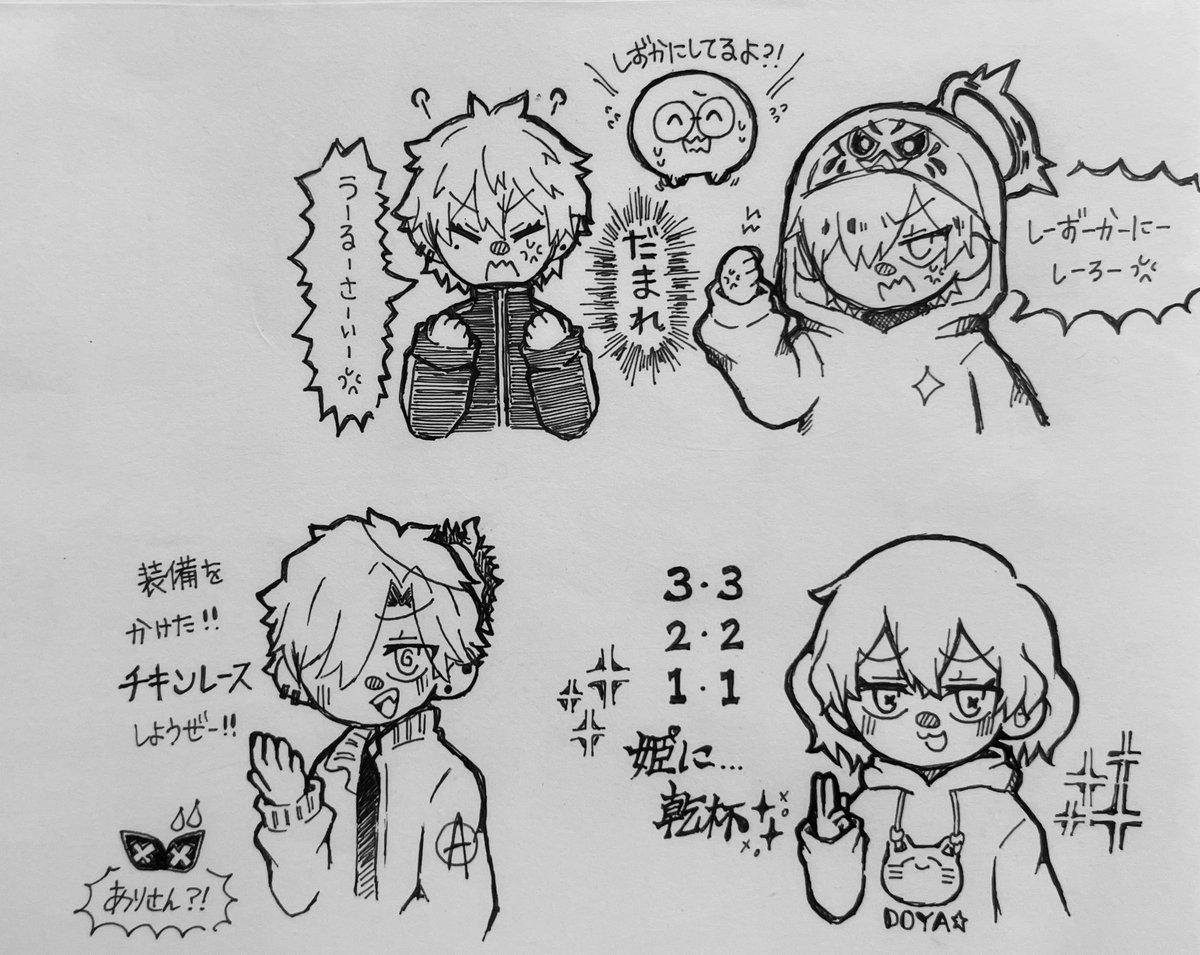 しずかにしてるよ?!
うーるーさーいー
だまれ
しーずーかーにー
しーろー
装備を
かけた!!
チキンレース
しようぜー!!
ありさん?!
3・3
2・2
1・1
姫に...
乾杯
DOYA☆